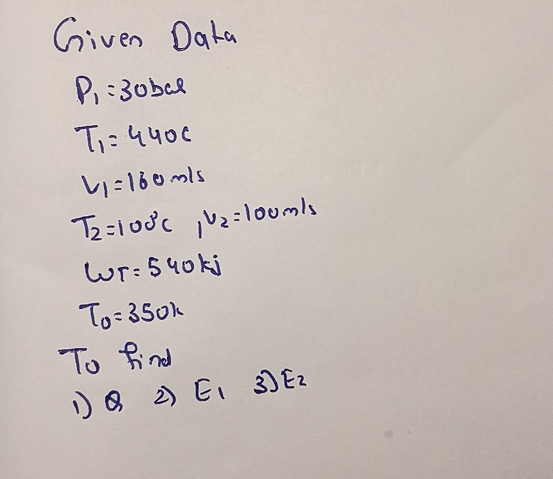 Given Data
P₁=30bar
T₁=440c
V₁=160m/s
T₂=100°c , V₂=100m/s
WT=540kj
T₀=350k
To find
1) Q 2) E₁ 3) E₂